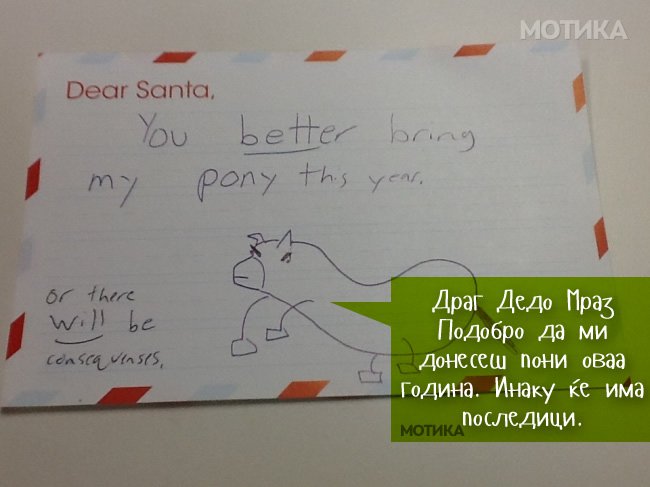 МОТИКА
Dear Santa,
You better bring
my pony this year.
or there
will be
consequenses.
Драг Дедо Мраз
Подобро да ми
донесеш пони оваа
година. Инаку ќе има
последици.
МОТИКА